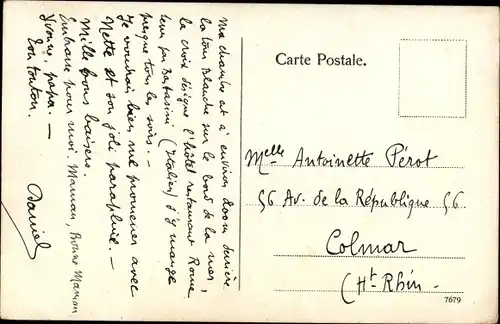 Ma chambre est à environ 200m derrière
la tour Blanche sur le bord de la mer,
la croix désigne l'hôtel restaurant Rome
tenu par Bertasini (Italien) d'y mange
presque tous les soirs. —
Je voudrais bien me promener avec
Nette et son joli parapluie. —
Mille bons baisers.
Embrasse pour moi. Maman, Bonne Maman
Yvonne, papa. —
Ton tonton.
Daniel
Carte Postale.
Melle Antoinette Pérot
56 Av. de la République 56
Colmar
(Ht-Rhin.
7679